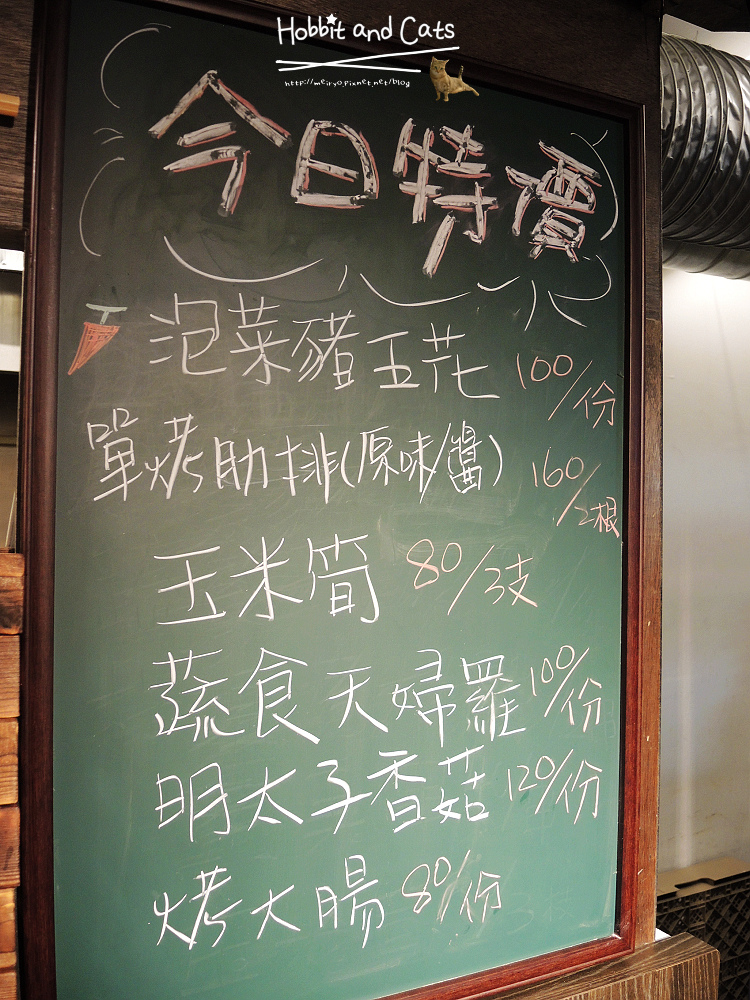 Hobbit and Cats
http://meiryo.pixnet.net/blog
今日特價
泡菜豬五花 100/份
單烤肋排(原味/醬) 160/2根
玉米筍 80/3支
蔬食天婦羅 100/份
明太子香菇 120/份
烤大腸 80/份